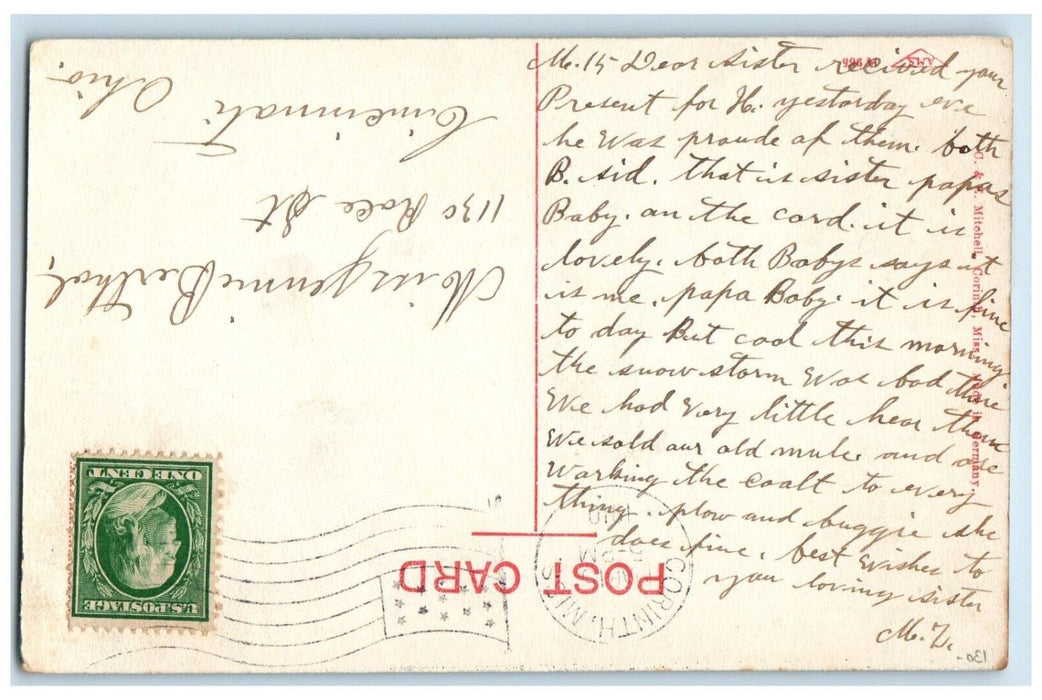 M. 15 Dear sister recived your
Present for H. yesterday eve
he was proude of them. both
B. sid. that is sister papas
Baby. on the card. it is
lovely. both Babys says it
is me. papa Baby. it is fine
to day But cool this morning.
the snow storm was bad there
We had very little hear then
We sold our old mule. and are
working the coalt to every
thing. plow and buggie she
does fine. best wishes to
you loving sister
M. Z.
130-
Miss Jennie Berthol,
1130 Race St
Cincinnati
Ohio.
POST CARD
CORINTH, MISS.
1910
U.S. POSTAGE
ONE CENT
A.M.S.
C. & J. Mitchell, Corinth, Miss. Made in Germany.